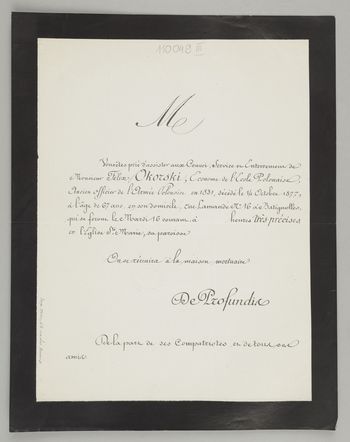 110048 III
M
Vous êtes prié d'assister aux Convoi, Service et Enterrement de
Monsieur Félix Okorski, Econome de l'Ecole Polonaise,
Ancien officier de l'Armée Polonaise en 1831, décédé le 14 Octobre 1877,
à l'âge de 67 ans, en son domicile, rue Lamandé No 16 à Batignolles,
qui se feront le Mardi 16 courant, à heures très précises
en l'Eglise Ste Marie, sa paroisse.
On se réunira à la maison mortuaire
De Profundis
De la part de ses Compatriotes et de tous ses
amis.